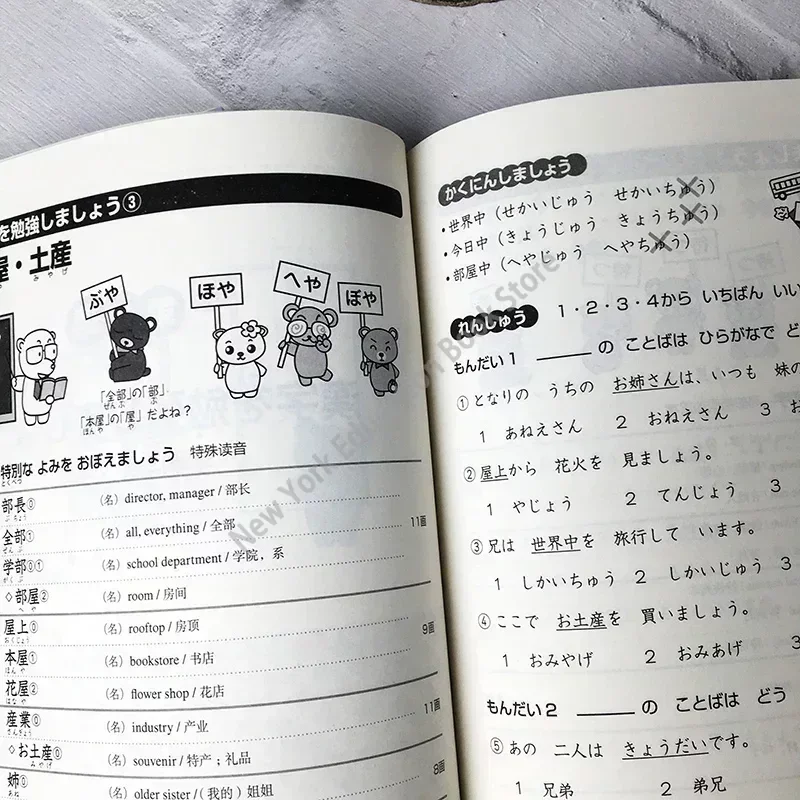 を勉強しましょう③
屋・土産
や みやげ
ぶや
ほや
へや
ぼや
「全部」の「部」
ぜんぶ ぶ
「本屋」の「屋」だよね?
ほんや や
特別な よみを おぼえましょう 特殊读音
とくべつ
部長⓪ (名) director, manager / 部长
ぶちょう
全部① (名) all, everything / 全部 11画
ぜんぶ
学部⓪① (名) school department / 学院,系
がくぶ
◇部屋② (名) room / 房间
へや
屋上⓪ (名) rooftop / 房顶 9画
おくじょう
本屋① (名) bookstore / 书店
ほんや
花屋② (名) flower shop / 花店
はなや
産業⓪ (名) industry / 产业 11画
さんぎょう
◇お土産⓪ (名) souvenir / 特产;礼品
みやげ
姉⓪ (名) older sister /(我的)姐姐 8画
あね
かくにんしましょう
・世界中(せかいじゅう せかいちゅう)
・今日中(きょうじゅう きょうちゅう)
・部屋中(へやじゅう へやちゅう)
れんしゅう 1・2・3・4から いちばん いい
もんだい1 ____の ことばは ひらがなで ど
①となりの うちの お姉さんは、いつも 妹の
1 あねえさん 2 おねえさん 3 お
②屋上から 花火を 見ましょう。
1 やじょう 2 てんじょう 3
③兄は 世界中を 旅行して います。
1 しかいちゅう 2 しかいじゅう 3
④ここで お土産を 買いましょう。
1 おみやげ 2 おみあげ 3
もんだい2 ____の ことばは どう
⑤あの 二人は きょうだいです。
1 兄弟 2 弟兄
New York Edition Book Store